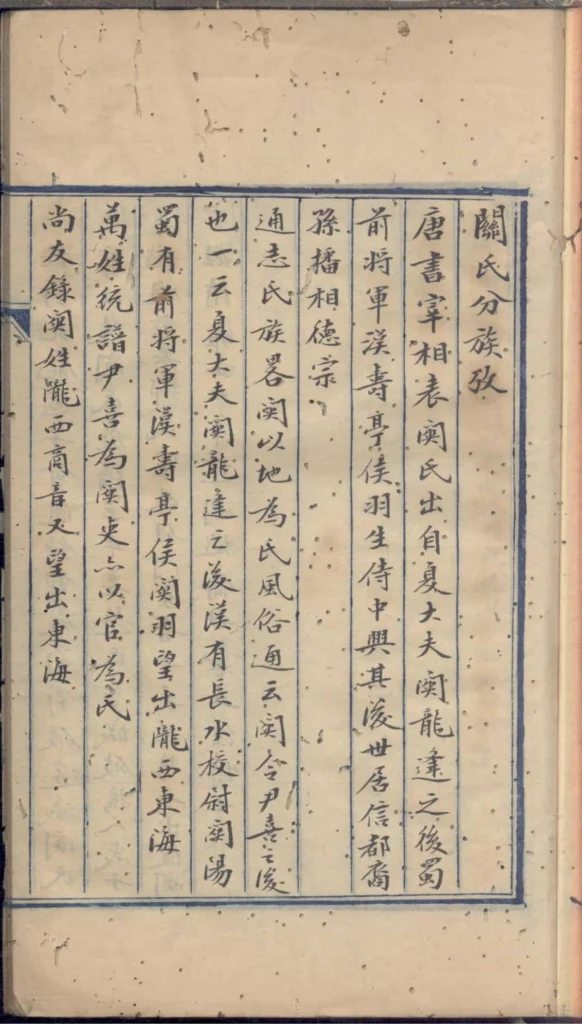 關氏分族攷
唐書宰相表関氏出自夏大夫関龍逢之後蜀
前將軍漢壽亭侯羽生侍中興其後世居信都裔
孫播相德宗
通志氏族畧関以地為氏風俗通云関令尹喜之後
也一云夏大夫関龍逢之後漢有長水校尉関陽
蜀有前將軍漢壽亭侯関羽望出隴西東海
萬姓統譜尹喜為関吏亦以官為氏
尚友錄関姓隴西商音又望出東海